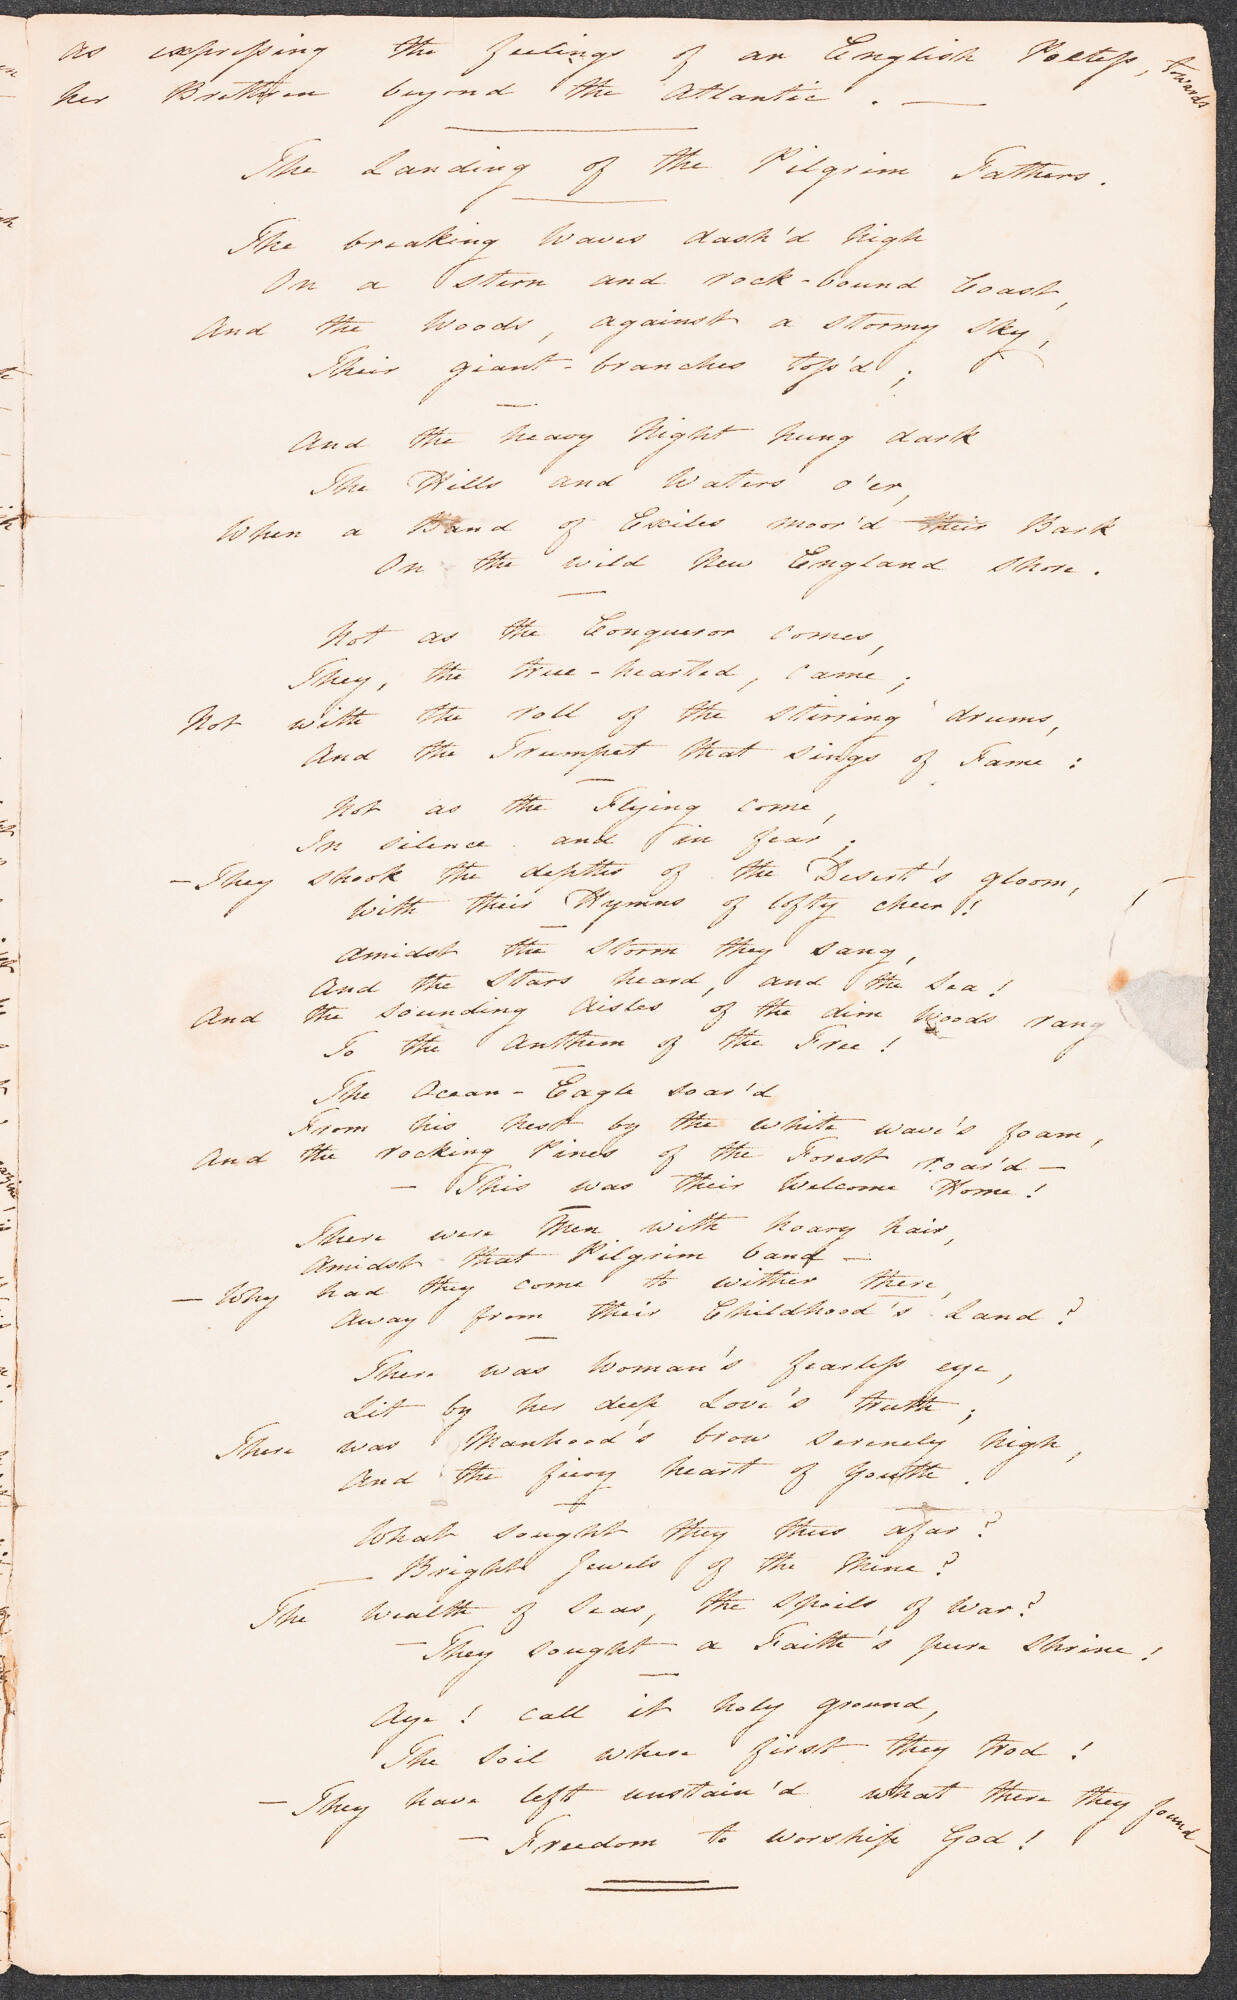 as expressing the feelings of an English Poetess, towards
her Brethren beyond the Atlantic. —
The Landing of the Pilgrim Fathers.
The breaking Waves dash'd high
On a stern and rock-bound Coast,
And the Woods, against a stormy Sky,
Their giant-branches toss'd;
And the heavy Night hung dark
The Hills and Waters o'er,
When a Band of Exiles moor'd their Bark
On the wild New England Shore.
Not as the Conqueror comes,
They, the true-hearted, came;
Not with the roll of the stirring drums,
And the Trumpet that sings of Fame:
Not as the Flying come,
In silence and in fear;
— They shook the depths of the Desert's gloom,
With their Hymns of lofty cheer!
Amidst the Storm they sang,
And the Stars heard, and the Sea!
And the sounding Aisles of the dim Woods rang
To the Anthem of the Free!
The Ocean-Eagle soar'd
From his nest by the white wave's foam,
And the rocking Pines of the Forest roar'd —
— This was their Welcome Home!
There were Men with hoary hair,
Amidst that Pilgrim band —
— Why had they come to wither there,
Away from their Childhood's Land?
There was Woman's fearless eye,
Lit by her deep Love's truth;
There was Manhood's brow serenely high,
And the fiery heart of Youth.
What sought they thus afar?
— Bright Jewels of the Mine?
The Wealth of Seas, the Spoils of War?
— They sought a Faith's pure Shrine!
Aye! call it holy ground,
The Soil where first they trod!
— They have left unstain'd what there they found —
— Freedom to worship God!